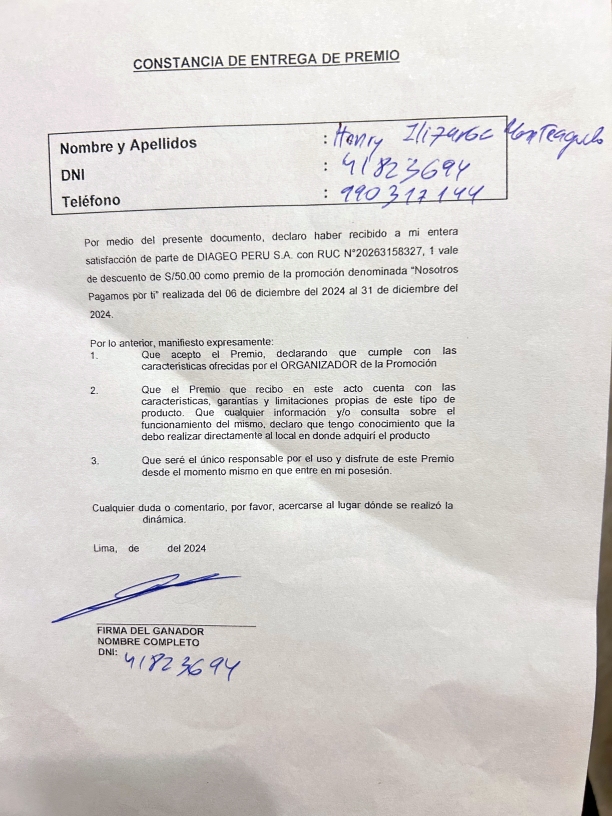 CONSTANCIA DE ENTREGA DE PREMIO
Nombre y Apellidos : Henry Monteagudo
DNI : 41823694
Teléfono : 990317144
Por medio del presente documento, declaro haber recibido a mi entera
satisfacción de parte de DIAGEO PERU S.A. con RUC N°20263158327, 1 vale
de descuento de S/50.00 como premio de la promoción denominada “Nosotros
Pagamos por ti” realizada del 06 de diciembre del 2024 al 31 de diciembre del
2024.
Por lo anterior, manifiesto expresamente:
1. Que acepto el Premio, declarando que cumple con las
características ofrecidas por el ORGANIZADOR de la Promoción
2. Que el Premio que recibo en este acto cuenta con las
características, garantías y limitaciones propias de este tipo de
producto. Que cualquier información y/o consulta sobre el
funcionamiento del mismo, declaro que tengo conocimiento que la
debo realizar directamente al local en donde adquirí el producto
3. Que seré el único responsable por el uso y disfrute de este Premio
desde el momento mismo en que entre en mi posesión.
Cualquier duda o comentario, por favor, acercarse al lugar dónde se realizó la
dinámica.
Lima, de del 2024
FIRMA DEL GANADOR
NOMBRE COMPLETO
DNI: 41823694